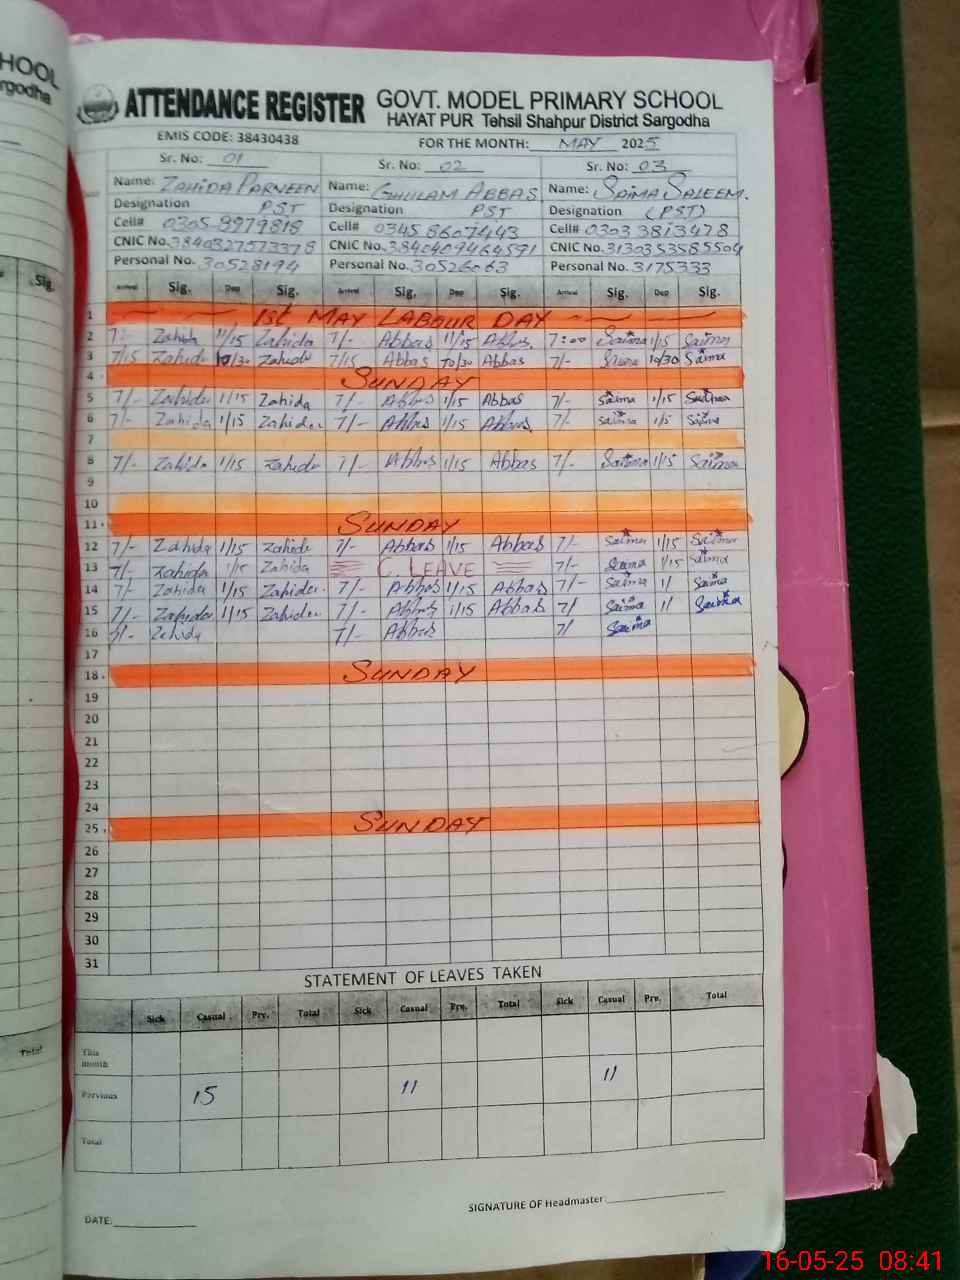 HOOL
rgodha
Sig.
Total
ATTENDANCE REGISTER GOVT. MODEL PRIMARY SCHOOL
HAYAT PUR Tehsil Shahpur District Sargodha
EMIS CODE: 38430438 FOR THE MONTH: MAY 2025
Sr. No: 01 Sr. No: 02 Sr. No: 03
Name: ZAHIDA PARNEEN Name: GHULAM ABBAS Name: SAIMA SALEEM.
Designation PST Designation PST Designation (PST)
Cell# 0305-8979818 Cell# 0345 8607443 Cell# 0303 3813478
CNIC No. 3840327573378 CNIC No. 3840409464591 CNIC No. 3130353585504
Personal No. 30528194 Personal No. 30526063 Personal No. 3175333
Arrival Sig. Dep Sig. Arrival Sig. Dep Sig. Arrival Sig. Dep Sig.
1 1st MAY LABOUR DAY
2 7: Zahida 11/15 Zahida 7/- Abbas 11/15 Abbas. 7:00 Saima 1/15 Saima
3 7/15 Zahida 10/30 Zahida 7/15 Abbas 10/30 Abbas 7/- Saima 10/30 Saima
4 SUNDAY
5 7/- Zahida 1/15 Zahida 7/- Abbas 1/15 Abbas 7/- Saima 1/15 Saima
6 7/- Zahida 1/15 Zahida 7/- Abbas 1/15 Abbas. 7/- Saima 1/5 Saima
7
8 7/- Zahida 1/15 Zahida 7/- Abbas 1/15 Abbas 7/- Saima 1/15 Saima
9
10
11 SUNDAY
12 7/- Zahida 1/15 Zahida 7/- Abbas 1/15 Abbas 7/- Saima 1/15 Saima
13 7/- Zahida 1/15 Zahida C. LEAVE 7/- Saima 1/15 Saima
14 7/- Zahida 1/15 Zahida. 7/- Abbas 1/15 Abbas 7/- Saima 1/ Saima
15 7/- Zahida 1/15 Zahida 7/- Abbas 1/15 Abbas 7/ Saima 1/ Saima
16 7/- Zahida 7/- Abbas 7/ Saima
17
18 SUNDAY
19
20
21
22
23
24
25 SUNDAY
26
27
28
29
30
31
STATEMENT OF LEAVES TAKEN
Sick Casual Prv. Total Sick Casual Prv. Total Sick Casual Prv. Total
This month
Pervious 15 11 11
Total
SIGNATURE OF Headmaster
DATE:
16-05-25 08:41